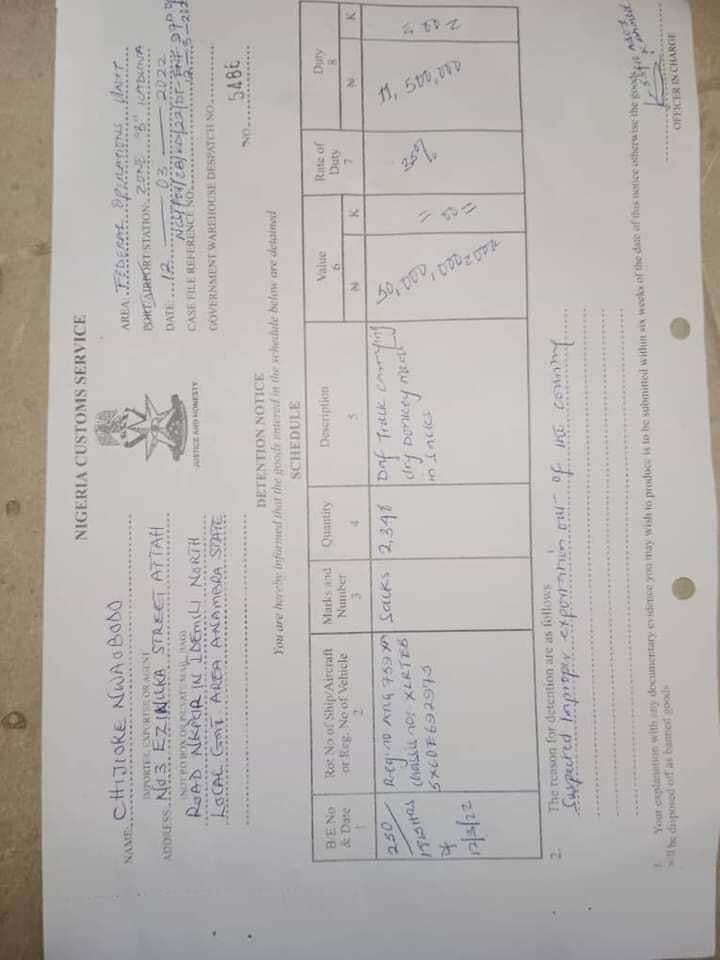 NIGERIA CUSTOMS SERVICE
NAME CHIJIOKE NWAOBODO
IMPORTER, EXPORTER OR AGENT
ADDRESS NO3 EZINUKA STREET ATTAH
(NOT P.O. BOX OR PRIVATE MAIL BAG)
ROAD NKPOR IN IDEMILI NORTH
LOCAL GOVT AREA ANAMBRA STATE
JUSTICE AND HONESTY
AREA FEDERAL OPERATIONS UNIT
PORT/AIRPORT/STATION ZONE "B" KADUNA
DATE 12 03 2022
CASE FILE REFERENCE NO
GOVERNMENT WAREHOUSE DESPATCH NO
NO 5486
DETENTION NOTICE
You are hereby informed that the goods entered in the schedule below are detained
SCHEDULE
B.E.No & Date 1
Rot No of Ship/Aircraft or Reg. No of Vehicle 2
Marks and Number 3
Quantity 4
Description 5
Value 6
Rate of Duty 7
Duty 8
N K N K
250/
12/3/22
Reg no
chassis no:
Sacks
2,398
Daf Truck carrying
dry Donkey
in sacks
50,000,000
11,500,000
2. The reason for detention are as follows
Suspected Improper exportation out of the country
3. Your explanation with any documentary evidence you may wish to produce is to be submitted within six weeks of the date of this notice otherwise the goods
will be disposed off as banned goods
OFFICER IN CHARGE